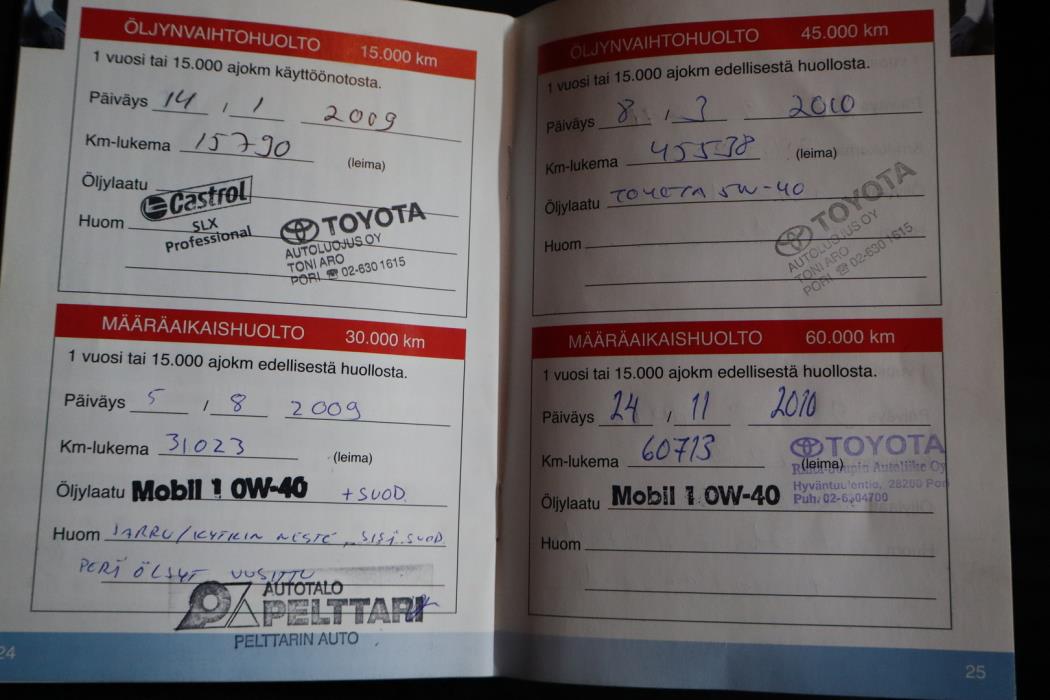 ÖLJYNVAIHTOHUOLTO 15.000 km
1 vuosi tai 15.000 ajokm käyttöönotosta.
Päiväys 14 / 1 2009
Km-lukema 15790 (leima)
Öljylaatu Castrol
Huom SLX
Professional
TOYOTA
AUTOLUOJUS OY
TONI ARO
PORI ☎ 02-630 1615
MÄÄRÄAIKAISHUOLTO 30.000 km
1 vuosi tai 15.000 ajokm edellisestä huollosta.
Päiväys 5 / 8 2009
Km-lukema 31023 (leima)
Öljylaatu Mobil 1 0W-40 + SUOD.
Huom JARRU/KYTKIN NESTE, SISÄ.SUOD.
PERÄ ÖLJYT UUSITTU
AUTOTALO
PELTTARI
PELTTARIN AUTO
24
ÖLJYNVAIHTOHUOLTO 45.000 km
1 vuosi tai 15.000 ajokm edellisestä huollosta.
Päiväys 8 / 3 2010
Km-lukema 45538 (leima)
Öljylaatu TOYOTA 5W-40
Huom
TOYOTA
AUTOLUOJUS OY
TONI ARO
PORI ☎ 02-630 1615
MÄÄRÄAIKAISHUOLTO 60.000 km
1 vuosi tai 15.000 ajokm edellisestä huollosta.
Päiväys 24 / 11 2010
Km-lukema 60713 (leima)
TOYOTA
Autoliike Oy
28200 Pori
Puh. 02-6304700
Öljylaatu Mobil 1 0W-40
Huom
25